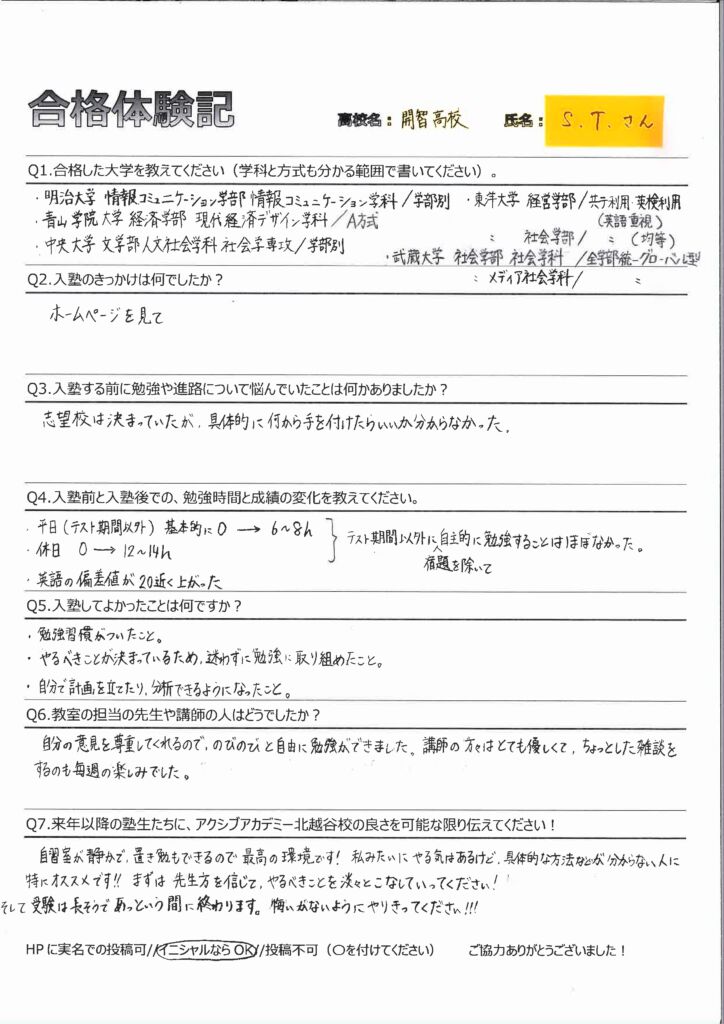 合格体験記
高校名：開智高校 氏名：S.T.さん
Q1.合格した大学を教えてください（学科と方式も分かる範囲で書いてください）。
・明治大学 情報コミュニケーション学部 情報コミュニケーション学科/学部別
・青山学院大学 経済学部 現代経済デザイン学科/A方式
・中央大学 文学部人文社会学科 社会学専攻/学部別
・東洋大学 経営学部/共テ利用・英検利用
(英語重視)
〃 社会学部/ 〃 (均等)
・武蔵大学 社会学部 社会学科 /全学部統一グローバル型
〃 メディア社会学科/ 〃
Q2.入塾のきっかけは何でしたか？
ホームページを見て
Q3.入塾する前に勉強や進路について悩んでいたことは何かありましたか？
志望校は決まっていたが、具体的に何から手を付けたらいいか分からなかった。
Q4.入塾前と入塾後での、勉強時間と成績の変化を教えてください。
・平日(テスト期間以外) 基本的に0 → 6~8h
・休日 0 → 12~14h
テスト期間以外に自主的に勉強することはほぼなかった。
宿題を除いて
・英語の偏差値が20近く上がった
Q5.入塾してよかったことは何ですか？
・勉強習慣がついたこと。
・やるべきことが決まっているため、迷わずに勉強に取り組めたこと。
・自分で計画を立てたり、分析できるようになったこと。
Q6.教室の担当の先生や講師の人はどうでしたか？
自分の意見を尊重してくれるので、のびのびと自由に勉強ができました。講師の方々はとても優しくて、ちょっとした雑談を
するのも毎週の楽しみでした。
Q7.来年以降の塾生たちに、アクシブアカデミー北越谷校の良さを可能な限り伝えてください！
自習室が静かで、置き勉もできるので最高の環境です! 私みたいにやる気はあるけど、具体的な方法などが分からない人に
特にオススメです!! まずは先生方を信じて、やるべきことを淡々とこなしていってください!
そして受験は長そうであっという間に終わります。悔いがないようにやりきってください!!!
HPに実名での投稿可//イニシャルならOK//投稿不可（〇を付けてください） ご協力ありがとうございました！